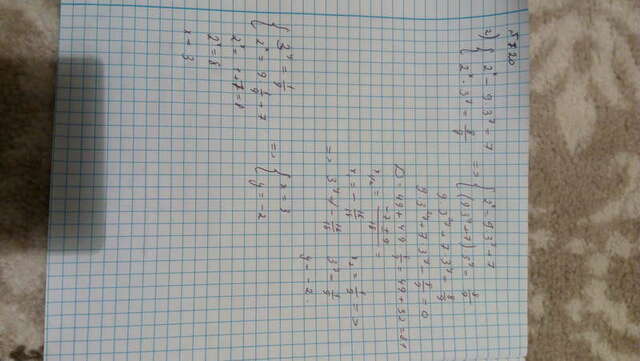 5720
2) { 2ˣ - 9·3ʸ = 7
2ˣ·3ʸ = 8/9
=> { 2ˣ = 9·3ʸ + 7
(9·3ʸ + 7)·3ʸ = 8/9
9·3²ʸ + 7·3ʸ = 8/9
9·3²ʸ + 7·3ʸ - 8/9 = 0
D = 49 + 4·9·8/9 = 49 + 32 = 81
x₁,₂ = (-7 ± 9)/18 =
x₁ = -16/18 x₂ = 1/9 =>
=> 3ʸ ≠ -16/18 3ʸ = 1/9
y = -2
{ 3ʸ = 1/9
2ˣ = 9·1/9 + 7
2ˣ = 1 + 7 = 8
2ˣ = 8
x = 3
=> { x = 3
y = -2